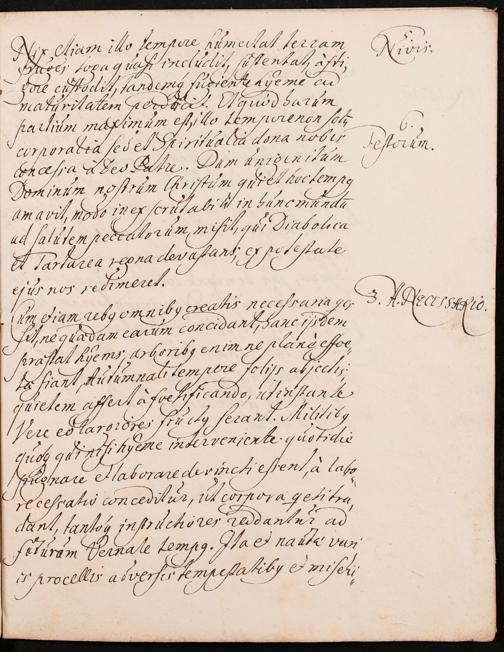 Nix etiam illo tempore humectat terram
fruges toga quasi includit, sustentat, a fri,,
gore custodit, tandemq fugiente hyeme ad
maturitatem perducit. Et quod harum
partium maximum est, illo tempore non solu
corporalia sed et Spiritualia dona nobis
concessa a Deo Patre. Dum unigenitum
Dominum nostrum Christum qui et hoc temp9
amavit, modo inexscrutabili in hunc mundu
ad salutem peccatorum, misit, qui Diabolica
et Tartarea regna devastans, ex potestate
ejus nos redimeret.
Cum etiam reb9 omnib9 creatis necessaria
sit, ne quadam earum concidant, sane ijsdem
præstat hyems, arborib9 enim ne plane effoe,,
tæ fiant, Autumnali tempore folijs abjectis
quietem affert a foetificando, ut instante
Vere eo largiores fruct9 ferant. Militib9
quoq qui nisi hyeme interveniente quotidie
pugnare et laborare devincti essent, a labo,,
re cessatio conceditur, ut corpora
dant, tantoq instructiores reddantur ad
futurum Vernale temp9. Ita et nautæ vari
is procellis adversis tempestatib9 et miseri,,
5.
Nivis.
6.
Festorum.
3. A. Necessario.